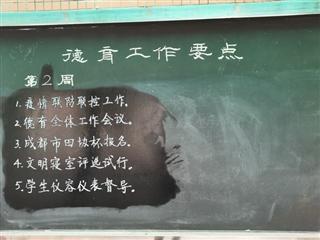 德育工作要点
第2周
1.疫情联防联控工作。
2.德育全体工作会议。
3.成都市四协杯报名。
4.文明寝室评选试行。
5.学生仪容仪表督导。